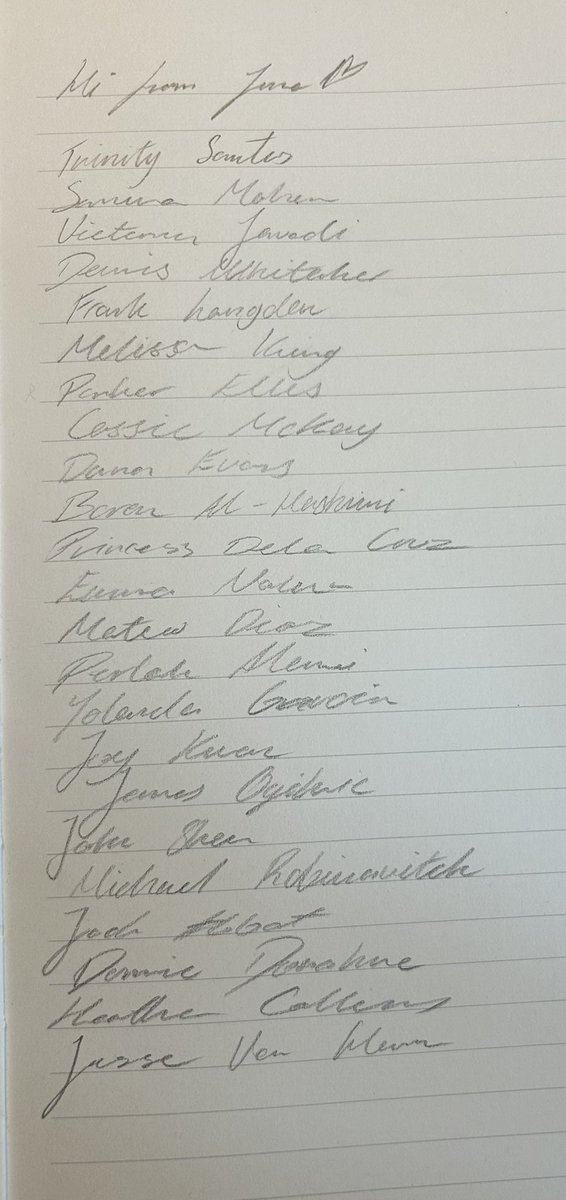 Hi from Jana
Trinity Santos
Samira Mohan
Victoria Javadi
Dennis Whitaker
Frank Langdon
Melissa King
Parker Ellis
Cassie McKay
Dana Evans
Baran Al-Hashimi
Princess Dela Cruz
Emma Nolan
Mateo Diaz
Perlah Alawi
Yolanda Garcia
Joy Kwon
James Ogilvie
John Shen
Michael Robinavitch
Jack Abbot
Donnie Donahue
Heather Collins
Jesse Van Horn